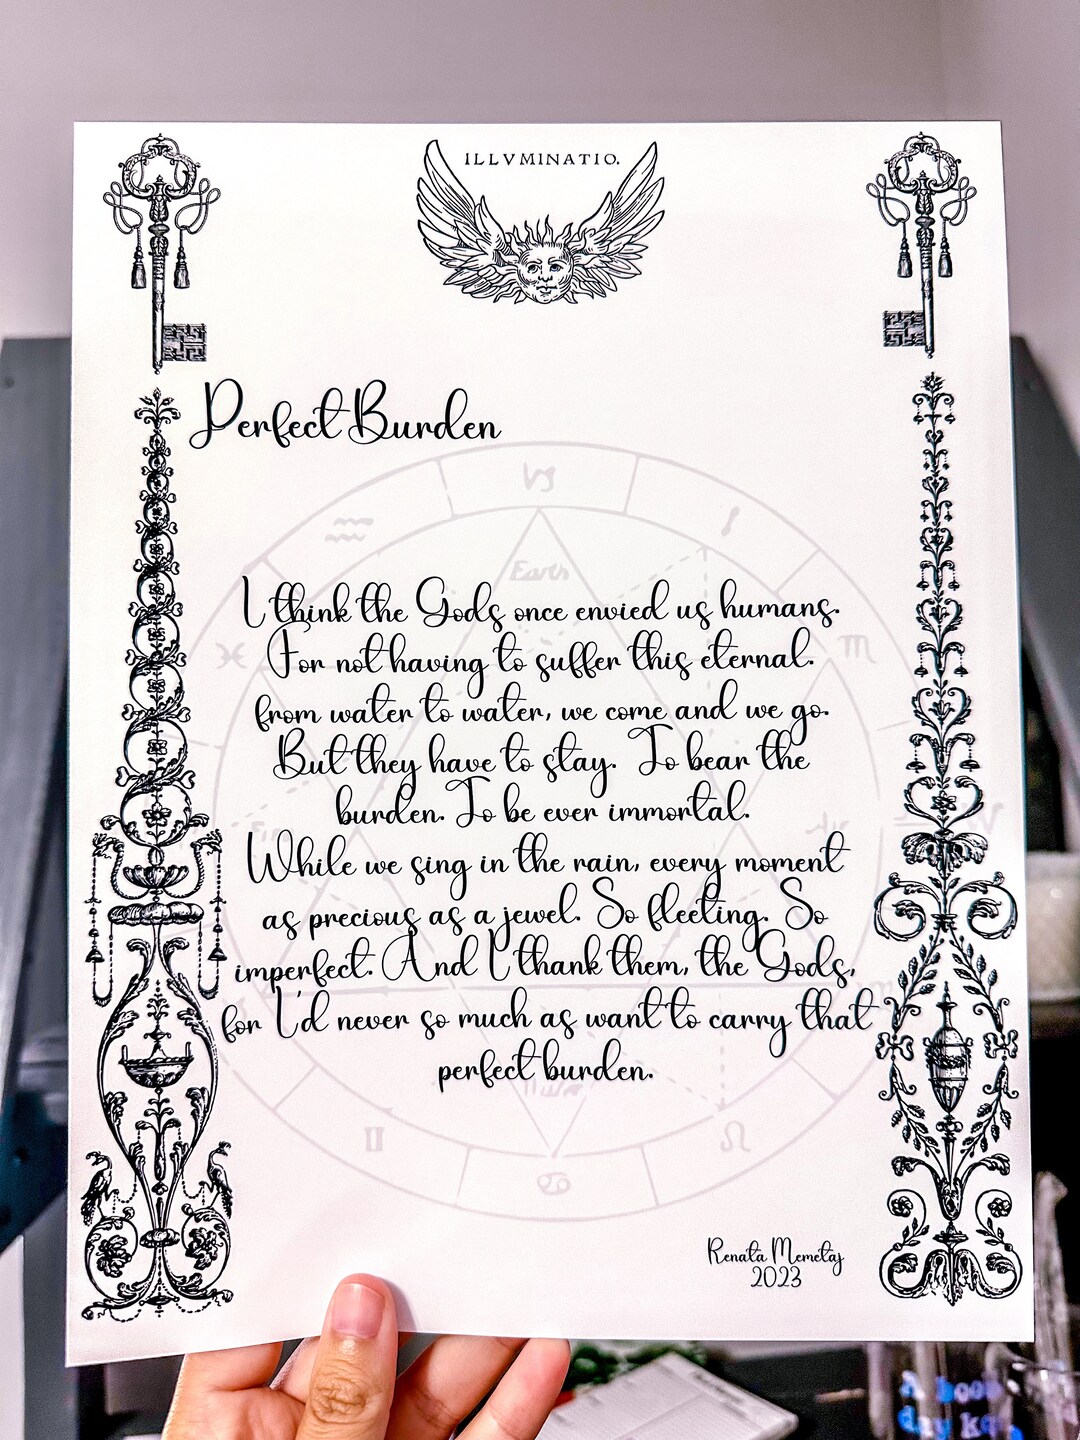 ILLVMINATIO.
Perfect Burden
Earth
I think the Gods once envied us humans.
For not having to suffer this eternal.
from water to water, we come and we go.
But they have to stay. To bear the
burden. To be ever immortal.
While we sing in the rain, every moment
as precious as a jewel. So fleeting. So
imperfect. And I thank them, the Gods,
for I'd never so much as want to carry that
perfect burden.
Renata Memetaj
2023